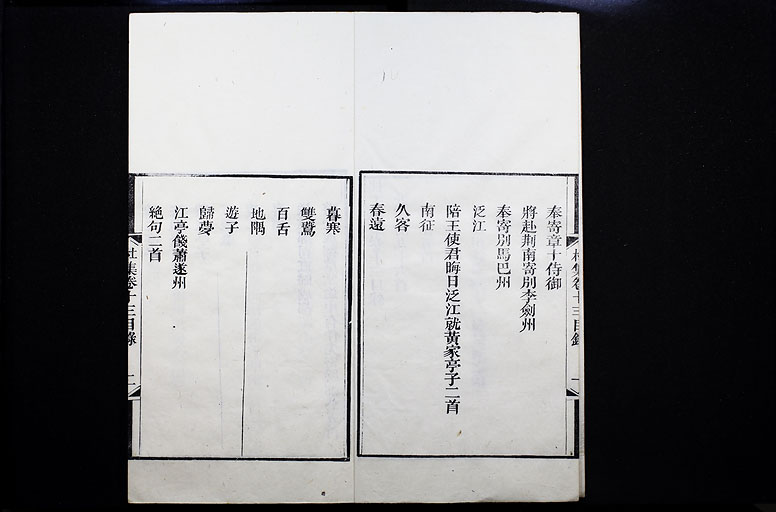 杜集卷十三目錄
一
奉寄章十侍御
將赴荆南寄別李劍州
奉寄別馬巴州
泛江
陪王使君晦日泛江就黃家亭子二首
南征
久客
春遠
暮寒
雙鷰
百舌
地隅
遊子
歸夢
江亭餞蕭遂州
絶句二首
杜集卷十三目錄
二